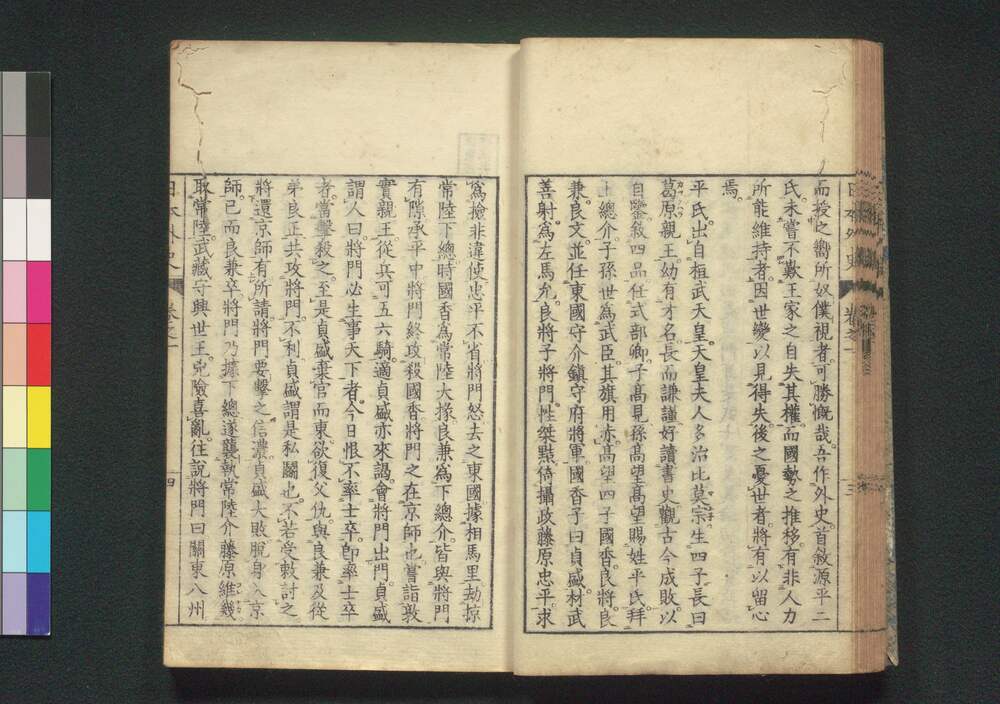 而授之嚮所奴僕視者可勝慨哉吾作外史首敘源平二
氏未嘗不歎王家之自失其權而國勢之推移有非人力
所能維持者因世變以見得失後之憂世者將有以留心
焉
平氏出自桓武天皇天皇夫人多治比莫宗生四子長曰
葛原親王幼有才名長而謙謹好讀書史觀古今成敗以
自鑒敘四品任式部卿子高見孫高望高望賜姓平氏拜
上總介子孫世為武臣其旗用赤高望四子國香良將良
兼良文並任東國守介鎮守府將軍國香子曰貞盛材武
善射為左馬允良將子將門性桀黠倚攝政藤原忠平求
為撿非違使忠平不省將門怒去之東國據相馬里劫掠
常陸下總時國香為常陸大掾良兼為下總介皆與將門
有隙承平中將門終攻殺國香將門之在京師也嘗詣敦
實親王從兵可五六騎適貞盛亦來謁會將門出門貞盛
謂人曰將門必生事天下者今日恨不率士卒卽率士卒
者當擊殺之至是貞盛棄官而東欲復父仇與良兼及從
弟良正共攻將門不利貞盛謂是私鬪也不若受敕討之
將還京師有所請將門要擊之信濃貞盛大敗脫身入京
師已而良兼卒將門乃據下總遂襲執常陸介藤原維幾
取常陸武藏守興世王兇險喜亂往說將門曰關東八州
日本外史 卷之一 四